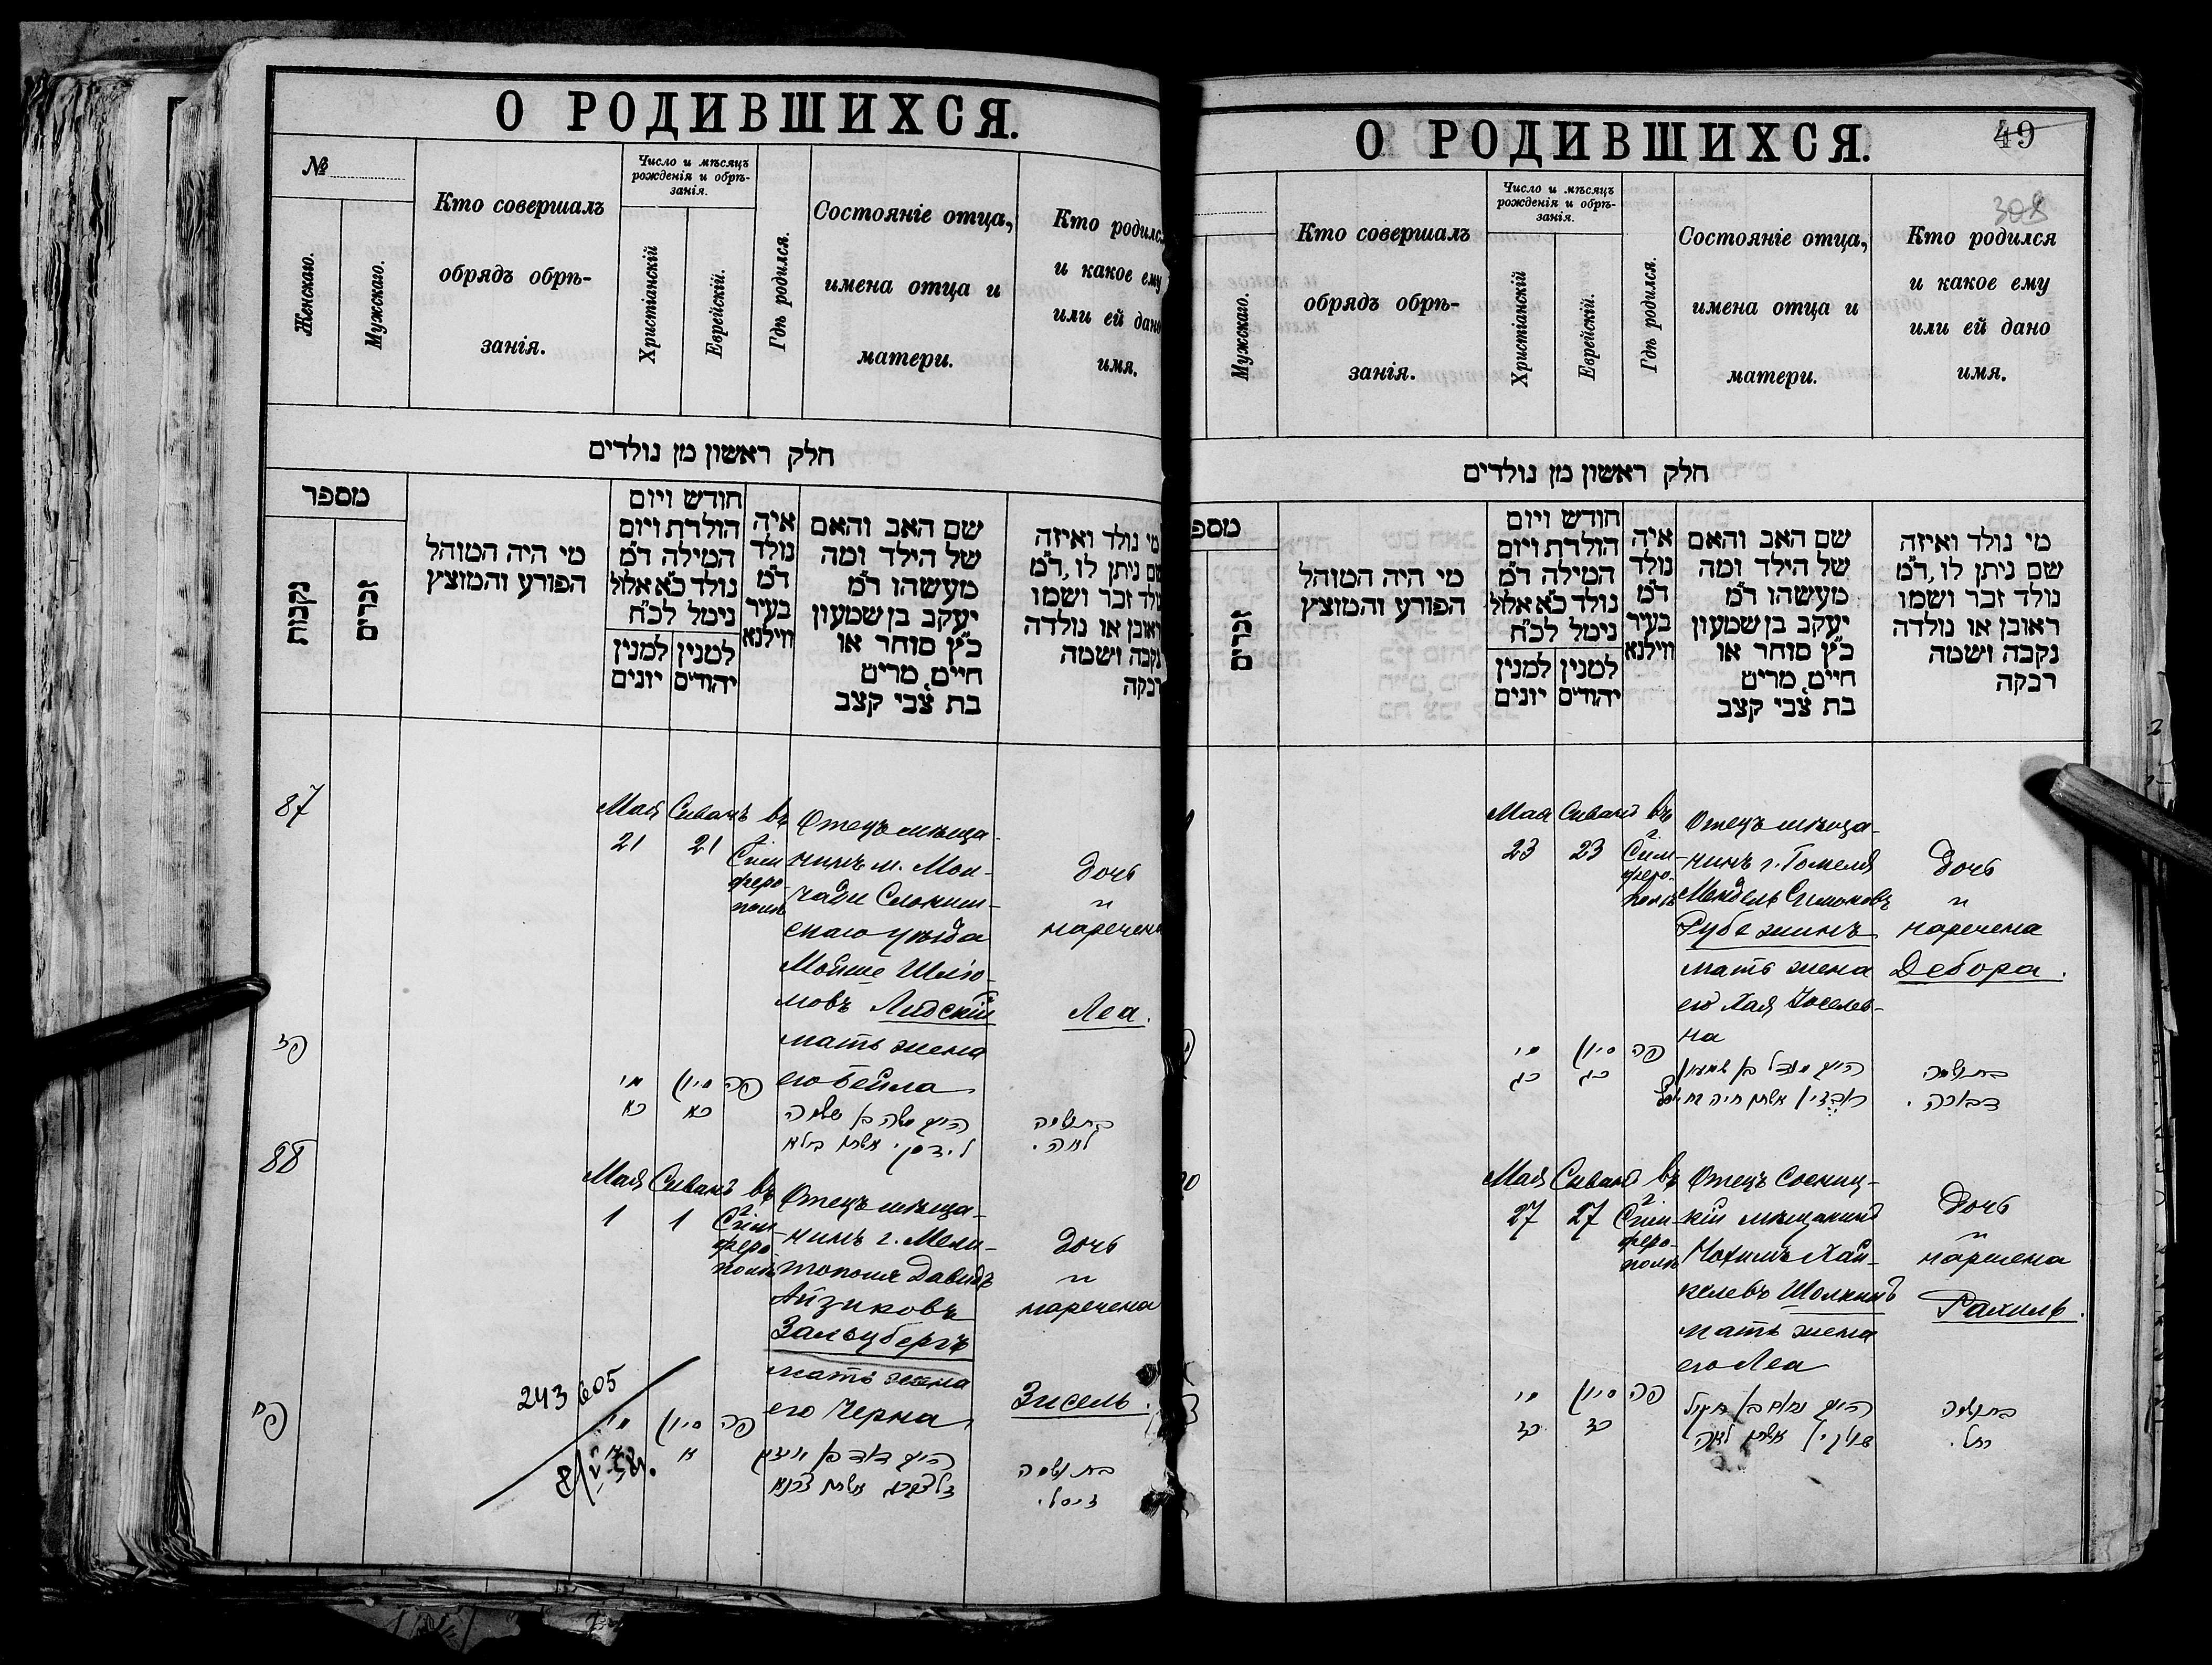 О РОДИВШИХСЯ.
№
Женскаго.
Мужскаго.
Кто совершалъ
обрядъ обрѣ-
занія.
Число и мѣсяцъ
рожденія и обрѣ-
занія.
Христіанскій
Еврейскій.
Гдѣ родился.
Состояніе отца,
имена отца и
матери.
Кто родился
и какое ему
или ей дано
имя.
חלק ראשון מן נולדים
מספר
נקבות
זכרים
מי היה המוהל
הפורע והמוצץ
חודש ויום
הולדת ויום
המילה ד״מ
נולד כ״א אלול
נימל לכ״ח
למנין למנין
יהודים יונים
איה
נולד
ד״מ
בעיר
ווילנא
שם האב והאם
של הילד ומה
מעשהו ד״מ
יעקב בן שמעון
כ״ץ סוחר או
חיים, מרים
בת צבי קצב
מי נולד ואיזה
שם ניתן לו, ד״מ
נולד זכר ושמו
ראובן או נולדה
נקבה ושמה
רבקה
87
Мая Сиванъ въ
21 21
г. Сим-
феро-
поль
Отецъ мѣща-
нинъ м. Мол-
чади Слоним-
скаго уѣзда
Мойше Шлiо-
мовъ Лидскій
мать жена
его Бейла
Дочь
"
наречена
Леа.
פז
מאי סיון פה
כא כא
האב משה בן שלמה
לידסקי אשתו ביילא
בת ושמה
לאה.
88
Мая Сиванъ въ
1 1
г. Сим-
феро-
поль
Отецъ мѣща-
нинъ г. Мели-
тополя Давидъ
Айзиковъ
Зальцбергъ
мать жена
его Черна
Дочь
"
наречена
Зисель.
243605
פח
מאי סיון פה
א א
בת ושמה
זיסל.
О РОДИВШИХСЯ.
49
308
Мужскаго.
Кто совершалъ
обрядъ обрѣ-
занія.
Число и мѣсяцъ
рожденія и обрѣ-
занія.
Христіанскій
Еврейскій.
Гдѣ родился.
Состояніе отца,
имена отца и
матери.
Кто родился
и какое ему
или ей дано
имя.
חלק ראשון מן נולדים
מספ
זכרים
מי היה המוהל
הפורע והמוצץ
חודש ויום
הולדת ויום
המילה ד״מ
נולד כ״א אלול
נימל לכ״ח
למנין למנין
יהודים יונים
איה
נולד
ד״מ
בעיר
ווילנא
שם האב והאם
של הילד ומה
מעשהו ד״מ
יעקב בן שמעון
כ״ץ סוחר או
חיים, מרים
בת צבי קצב
מי נולד ואיזה
שם ניתן לו, ד״מ
נולד זכר ושמו
ראובן או נולדה
נקבה ושמה
רבקה
Мая Сиванъ въ
23 23
г. Сим-
феро-
поль
Отецъ мѣща-
нинъ г. Гомеля
Мендель Симоновъ
Рубежинъ
мать жена
его Хая Іоселев-
на
Дочь
"
наречена
Дебора.
מאי סיון פה
כג כג
בת ושמה
דבורה.
Мая Сиванъ въ
27 27
г. Сим-
феро-
поль
Отецъ Сосниц-
кій мѣщанинъ
Нохимъ Хай-
келевъ Шолкинъ
мать жена
его Леа
Дочь
"
наречена
Рахиль.
מאי סיון פה
כז כז
בת ושמה
רחל.